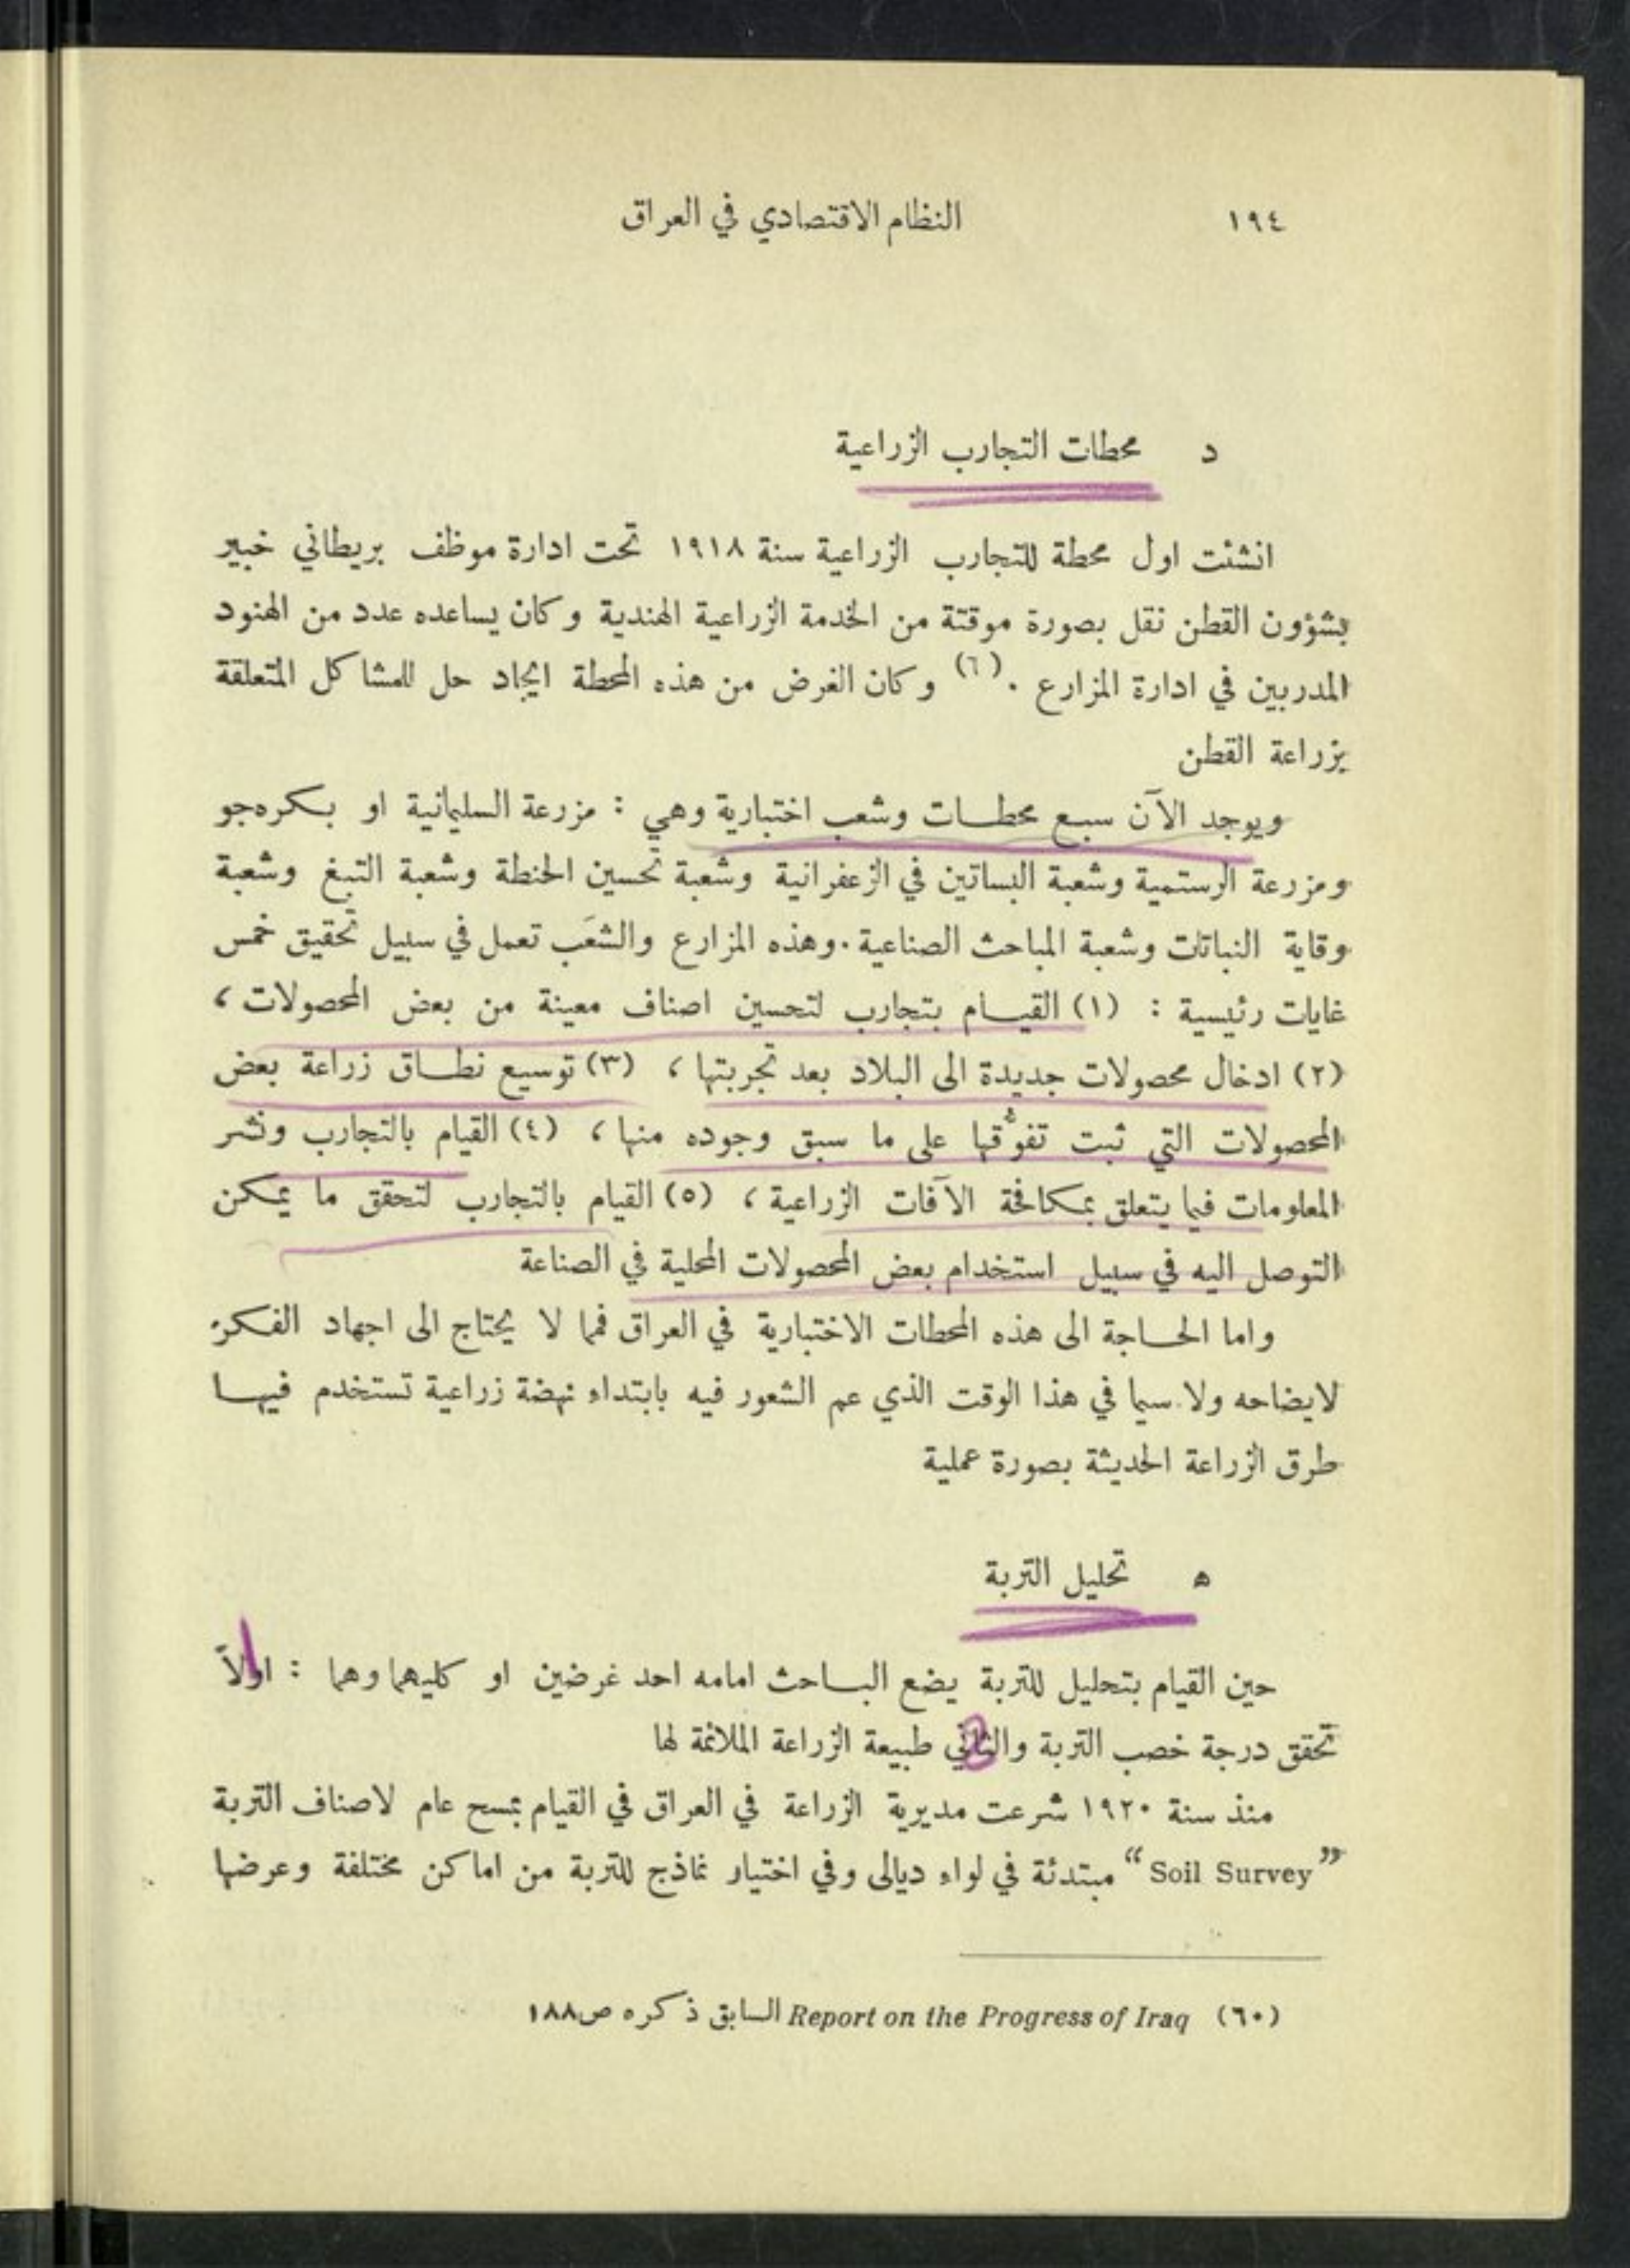 ١٩٤ النظام الاقتصادي في العراق
د محطات التجارب الزراعية
انشئت اول محطة للتجارب الزراعية سنة ١٩١٨ تحت ادارة موظف بريطاني خبير
بشؤون القطن نقل بصورة موقتة من الخدمة الزراعية الهندية وكان يساعده عدد من الهنود
المدربين في ادارة المزارع . (٦) وكان الغرض من هذه المحطة ايجاد حل للمشاكل المتعلقة
بزراعة القطن
ويوجد الآن سبع محطات وشعب اختبارية وهي : مزرعة السليمانية او بكرهجو
ومزرعة الرستمية وشعبة البساتين في الزعفرانية وشعبة تحسين الحنطة وشعبة التبغ وشعبة
وقاية النباتات وشعبة المباحث الصناعية . وهذه المزارع والشعَب تعمل في سبيل تحقيق خمس
غايات رئيسية : (١) القيام بتجارب لتحسين اصناف معينة من بعض المحصولات ،
(٢) ادخال محصولات جديدة الى البلاد بعد تجربتها ، (٣) توسيع نطاق زراعة بعض
المحصولات التي ثبت تفوُّقها على ما سبق وجوده منها ، (٤) القيام بالتجارب ونشر
المعلومات فيما يتعلق بمكافحة الآفات الزراعية ، (٥) القيام بالتجارب لتحقق ما يمكن
التوصل اليه في سبيل استخدام بعض المحصولات المحلية في الصناعة
واما الحاجة الى هذه المحطات الاختبارية في العراق فمما لا يحتاج الى اجهاد الفكر
لايضاحه ولا سيما في هذا الوقت الذي عم الشعور فيه بابتداء نهضة زراعية تستخدم فيها
طرق الزراعة الحديثة بصورة عملية
ه تحليل التربة
حين القيام بتحليل للتربة يضع الباحث امامه احد غرضين او كليهما وهما : اولاً
تحقق درجة خصب التربة والثاني طبيعة الزراعة الملائمة لها
منذ سنة ١٩٢٠ شرعت مديرية الزراعة في العراق في القيام بمسح عام لاصناف التربة
“Soil Survey” مبتدئة في لواء ديالى وفي اختيار نماذج للتربة من اماكن مختلفة وعرضها
(٦٠) Report on the Progress of Iraq السابق ذكره ص١٨٨